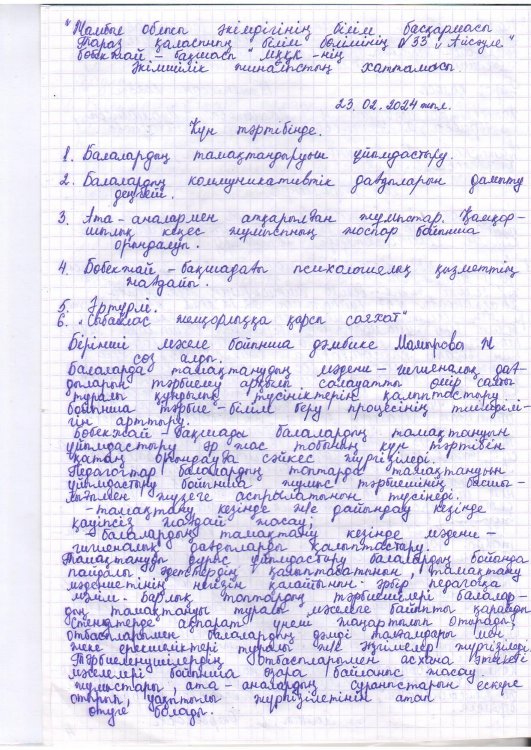 "Жамбыл облысы әкімдігінің білім басқармасы
Тараз қаласының білім бөлімінің №33 "Айсәуле"
бөбекжай - бақшасы" МҚКК -нің
Әкімшілік жиналыстың хаттамасы
23.02.2024 жыл.
Күн тәртібінде.
1. Балалардың тамақтандыруын ұйымдастыру.
2. Балалардың коммуникативтік дағдыларын дамыту
деңгейі.
3. Ата-аналармен атқарылған жұмыстар. Қамқор-
шылық кеңес жұмысының жоспар бойынша
орындалуы.
4. Бөбекжай - бақшадағы психологиялық қызметтің
жағдайы.
5. Әртүрлі.
6. "Сыбайлас жемқорлыққа қарсы саяхат"
Бірінші мәселе бойынша дәмбике Мамырова Ж
сөз алды.
Балаларда тамақтанудың мәдени - гигиеналық дағ-
дыларын тәрбиелеу арқылы салауатты өмір салты
туралы құндылық түсініктерін қалыптастыру
бойынша тәрбие - білім беру процесінің тиімділі-
гін арттыру.
Бөбекжай - бақшады балалардың тамақтануын
ұйымдастыру әр жас тобының күн тәртібін
қатаң орындауға сәйкес жүргізіледі.
Педагогтар балалардың топтарда тамақтануын
ұйымдастыру бойынша жұмыс тәрбиешінің басшы-
лығымен жүзеге асрылатынын түсінеді.
- тамақтану кезінде ж/е дайындау кезінде
қауіпсіз жағдай жасау;
балалардың тамақтану кезінде мәдени -
гигиеналық дағдыларды қалыптастыру.
Тамақтануды дұрыс ұйымдастыру балалардың бойында
пайдалы әдеттердің қалыптасатынын, тамақтану
мәдениетінің негізін қалайтыны - әрбір педагогқа
мәлім. барлық топтардың тәрбиешілері балалар-
дың тамақтануы туралы мәселеге байыпты қарайды
стендтерде ақпарат үнемі жаңартылып отырады.
отбасыларымен балалардың дәмді тағамдары мен
жеке ерекшеліктері туралы ж/е әңгімелер жүргізіледі.
Тәрбиеленушілердің отбасыларымен асхана этикеті
мәселелері бойынша өзара байланыс жасау.
жұмыстары, ата - аналардың сұраныстарын ескере
отырып, уақытылы жүргізілетінін атап
өтуге болады.